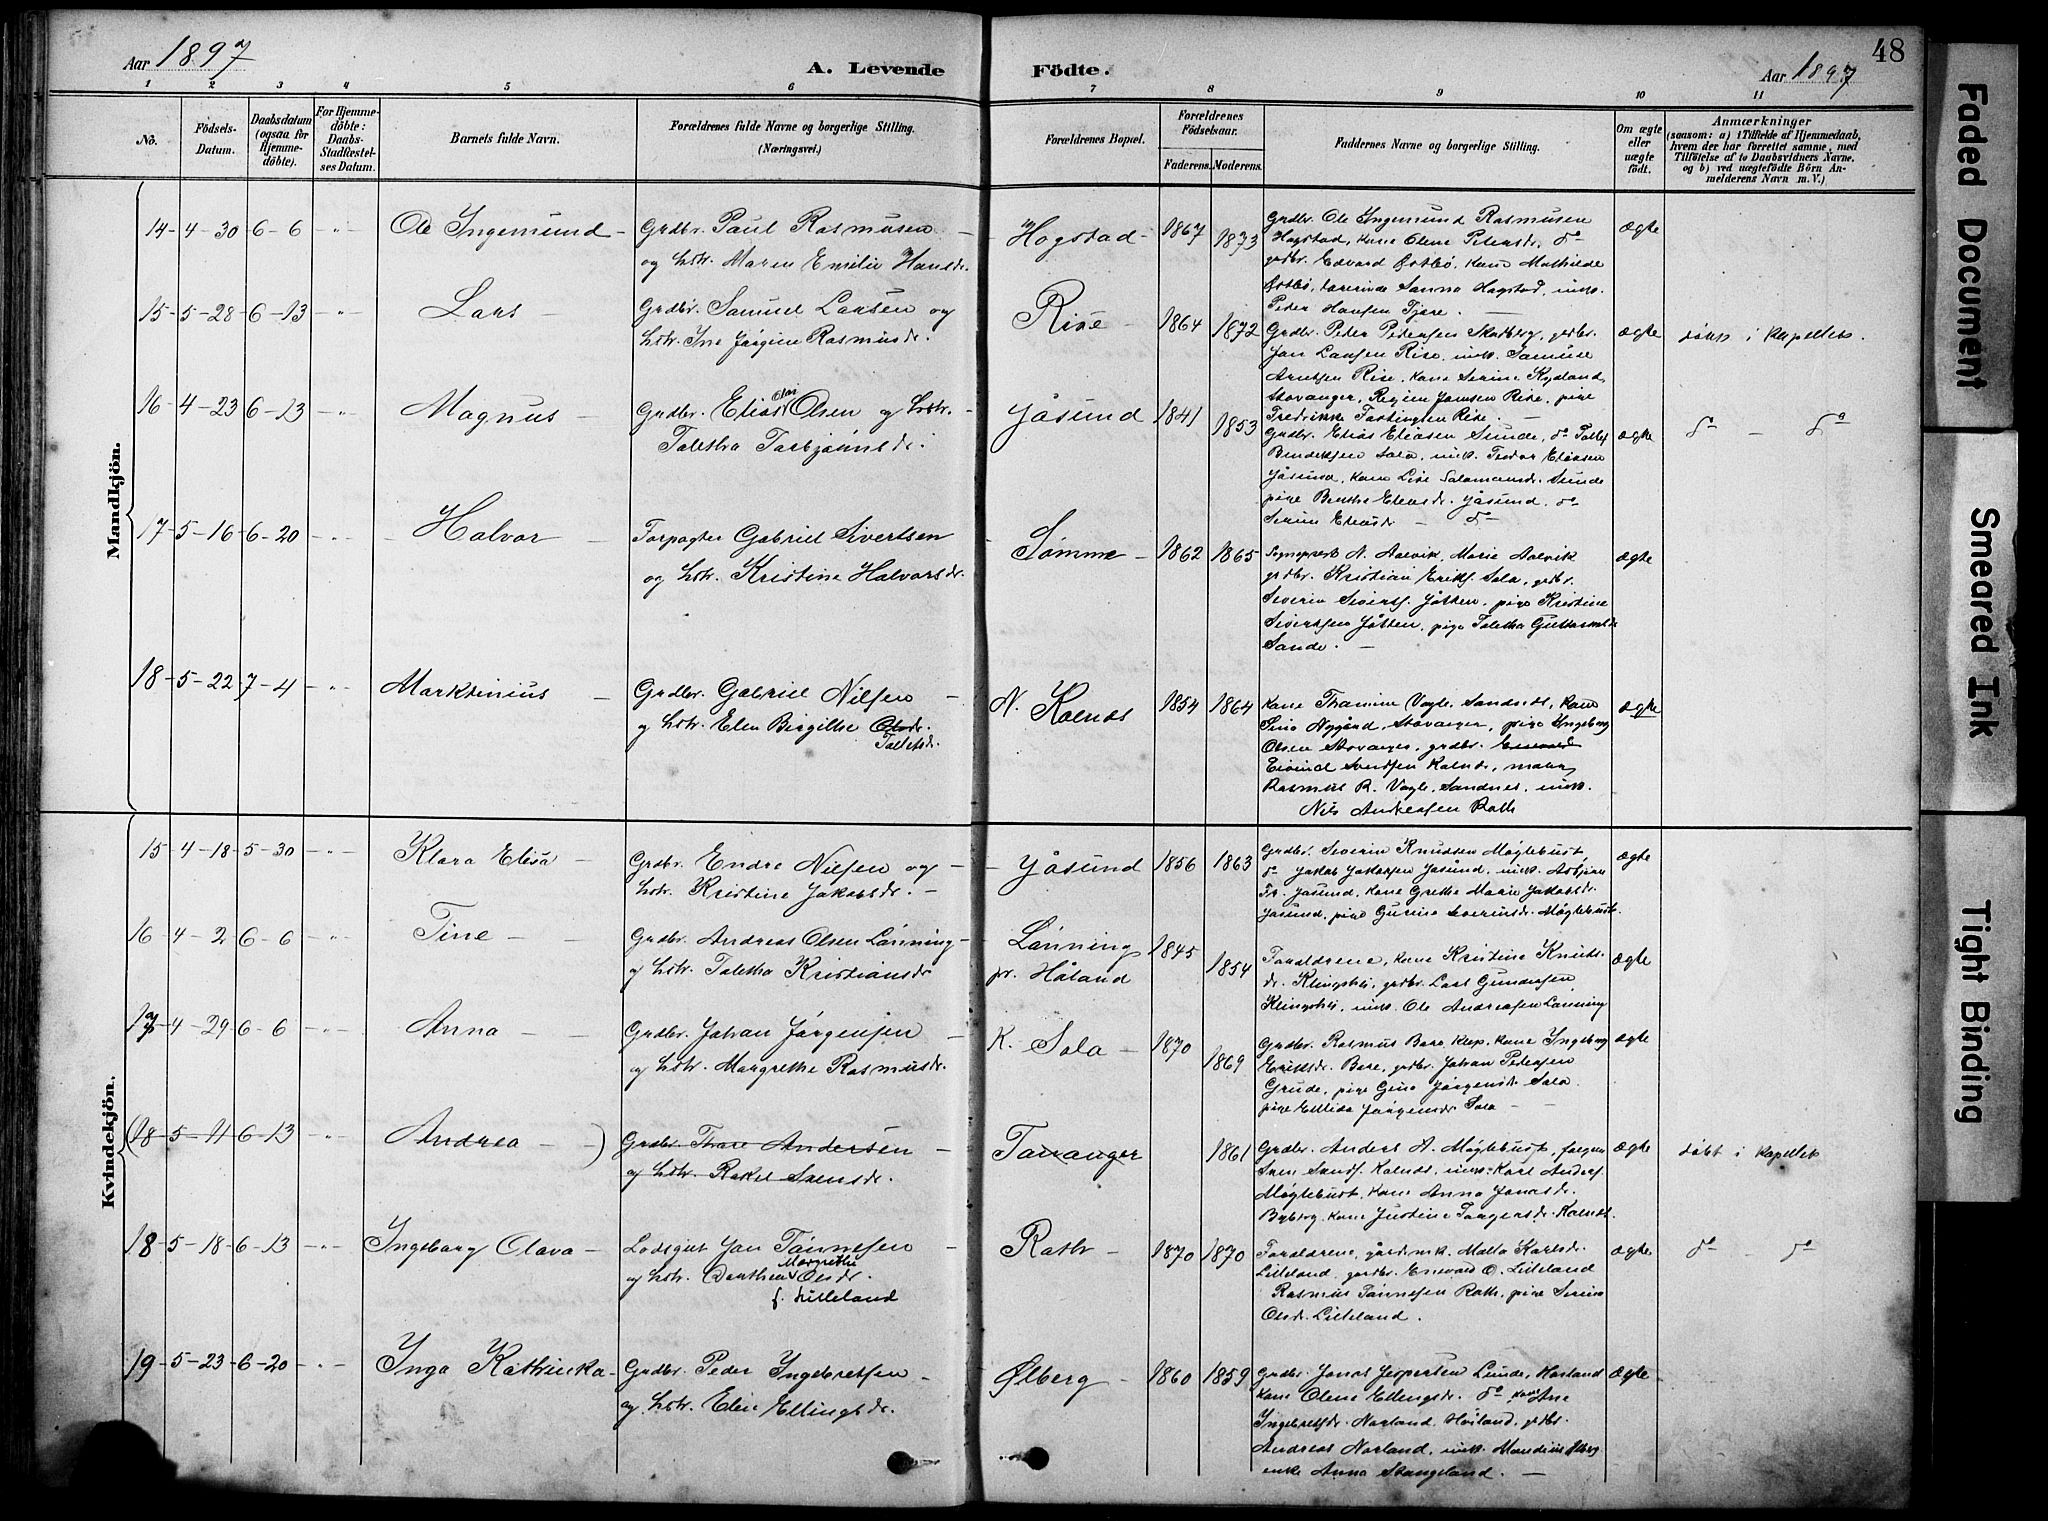 Aar 1897
A. Levende
Födte.
Aar 1897
48
1 2 3 4 5 6 7 8 9 10 11
No.
Födsels-Datum.
Daabsdatum (ogsaa for Hjemme-döbte).
For Hjemme-döbte: Daabs-Stadfæstel-ses Datum.
Barnets fulde Navn.
Forældrenes fulde Navne og borgerlige Stilling.
(Næringsvei.)
Forældrenes Bopæl.
Forældrenes Födselsaar.
Faderens. Moderens.
Faddernes Navne og borgerlige Stilling.
Om ægte eller uægte födt.
Anmærkninger
(saasom: a) i Tilfælde af Hjemmedaab, hvem der har forrettet samme, med Tilföielse af to Daabsvidners Navne. og b) ved uægtefödte Börn An-melderens Navn m. V.)
Mandkjön.
14 - 4 - 30 6 - 6 -"- Ole Ingemund - Grdbr. Paul Rasmusen -
og hstr. Maren Emilie Hansdr.
Hogstad - 1867 1873
Grdbr. Ole Ingemund Rasmusen
Hogstad, kone Olene Petersdr. do
grdbr. Edvard Østbö, kone Mathilde
Østbö, lærerinde Sanna Hogstad, ungk.
Peder Hansen Tjore. -
ægte
15 - 5 - 28 - 6 - 13 -"- Lars - Grdbr. Samuel Larsen og
hstr. Ine Jörgine Rasmusdr.
Rise - 1864 1872
Grdbr. Peder Pedersen Skadberg, grdbr.
Jan Larsen Rise, ungk. Samuel
Arntsen Rise, kone Serine Kydland,
Stavanger,
ægte döbt i kapellet.
16 - 4 - 23 6 - 13 -"- Magnus - Grdbr. Elias Olsen og hstr.
Taletha Torbjörnsdr.
Jåsund 1841 1853
Grdbr. Elias Eliasen Sunde, do
Jåsund, kone Lise Salamonsdr. Sunde
pige Berthe Eliasdr. Jåsund, do
Serine Eliasdr. - do -
ægte do - do
17 - 5 - 16 - 6 - 20 -"- Halvor - Forpagter Gabriel Sivertsen
og hstr. Kristine Halvorsdr.
Sömme - 1862 1865
Sogneprest N. Aalvik, Marie Aalvik
grdbr. Kristian Eriks. Sola, grdbr.
Severin Siverts. Jåtten, pige Kristine
Sivertsen Jåtten, pige Taletha
Sande. -
ægte
18 - 5 - 22 7 - 4 -"- Marktinius - Grdbr. Gabriel Nilsen -
og hstr. Elen Birgitte Olsdr.
Taletsdr.
N. Kolnes 1854 1864
Kone Thamine Vagle, Sandnes, kone
Sina Nygård, Stavanger, pige Ingeborg
Olsen Stavanger, grdbr. Enevald
Eivind Svendsen Kolnes, maler
Rasmus R. Vagle, Sandnes, ungk.
Nils Andreasen Roth
ægte
Kvindekjön.
15 - 4 - 18 - 5 - 30 -"- Klara Elisa - Grdbr. Endre Nilsen og -
hstr. Kristine Jakobsdr. -
Jåsund 1856 1863
Grdbr. Severin Knudsen Mögletust,
do Jakob Jakobsen Jåsund, ungk. Asbjörn
Fr. Jåsund, kone Grethe Marie Jakobsdr.
Jåsund, pige Gurine Severinsdr. Mögletust.
ægte
16 - 4 - 2 6 - 6 -"- Tine - - Grdbr. Andreas Olsen Lönning -
og hstr. Taletha Kristiansdr.
Lönning
pr. Håland
1845 1854
Forældrene, kone Kristine Knuts-
dr. Klingshei, grdbr. Lars Gundersen,
Klingshei, ungk. Ole Andreasen Lönning
ægte
17 - 4 - 29 6 - 6 -"- Anna - Grdbr. Johan Jörgensen -
og hstr. Margrethe Rasmusdr.
K. Sola - 1870 1869
Grdbr. Rasmus Bore, Klep. kone Ingeborg
Eriksdr. Bore, grdbr. Johan Pedersen
Grude, pige Gine Jörgensdr. Sola
pige Ellida Jörgensdr. Sola - -
ægte
(18 - 5 - 11 6 - 13 -"- Andrea - ) Grdbr. Thore Andersen -
og hstr. Rakel Svensdr.
Tananger 1861
Grdbr. Anders A. Mögletust,
Sven Sands. Kolnes, ungk. Karl Anders.
Mögletust, kone Anna Jonasdr.
Byberg, kone Justine Torgersdr. Kolnes.
ægte döbt i kapellet
18 - 5 - 18 - 6 - 13 -"- Ingeborg Olava - Lodsgut Jan Tönnesen -
og hstr. Dorthea Margrethe Olsdr.
f. Lilleland
Roth - 1870 1870
Forældrene, Malta Karlsdr.
Lilleland, grdbr. Enevald O. Lilleland
Rasmus Tönnesen Roth, pige Serine
Olsdr. Lilleland.
ægte do - do
19 - 5 - 23 - 6 - 20 -"- Inga Kathinka - Grdbr. Peder Ingebretsen -
og hstr. Elen Ellingsdr.
Ølberg - 1860 1859
Grdbr. Jonas Jespersen Lunde, Høiland
kone Olene Ellingsdr. do kone Ane
Ingebretsdr. Norland, Høiland, grdbr.
Andreas Norland, ungk. Mandius Ølberg
enke Anna Stangeland. -
ægte
Faded Document
Smeared Ink
Tight Binding